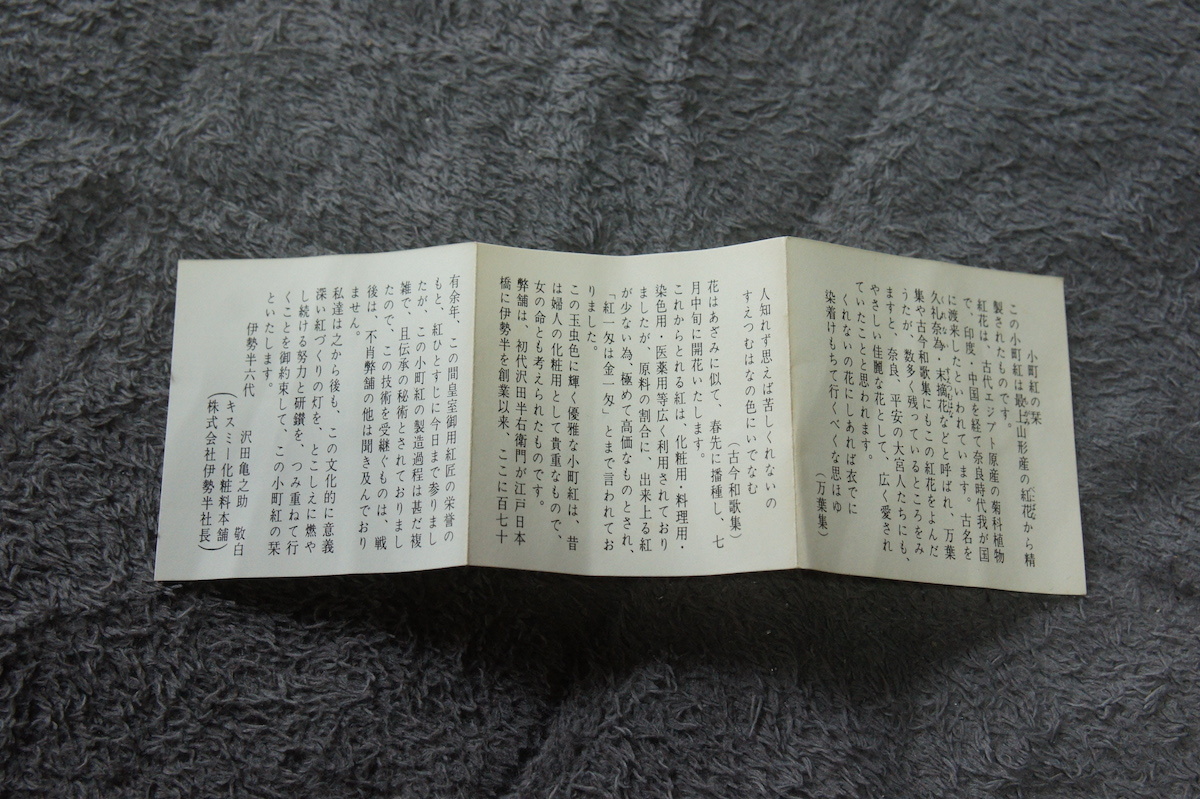 小町紅の栞
この小町紅は最上山形産の紅花から精
製されたものです。
紅花は、古代エジプト原産の菊科植物
で、印度・中国を経て奈良時代我が国
に渡来したといわれています。古名を
久礼奈為・末摘花などと呼ばれ、万葉
集や古今和歌集にもこの紅花をよんだ
うたが、数多く残っているところをみ
ますと、奈良、平安の大宮人たちにも、
やさしい佳麗な花として、広く愛され
ていたことと思われます。
くれないの花にしあれば衣でに
染着けもちて行くべく思ほゆ
(万葉集)
人知れず思えば苦しくれないの
すえつむはなの色にいでなむ
(古今和歌集)
花はあざみに似て、春先に播種し、七
月中旬に開花いたします。
これからとれる紅は、化粧用・料理用・
染色用・医薬用等広く利用されており
ましたが、原料の割合に、出来上る紅
が少ない為、極めて高価なものとされ、
「紅一匁は金一匁」とまで言われてお
りました。
この玉虫色に輝く優雅な小町紅は、昔
は婦人の化粧用として貴重なもので、
女の命とも考えられたものです。
弊舗は、初代沢田半右衛門が江戸日本
橋に伊勢半を創業以来、ここに百七十
有余年、この間皇室御用紅匠の栄誉の
もと、紅ひとすじに今日まで参りまし
たが、この小町紅の製造過程は甚だ複
雑で、且伝承の秘術とされておりまし
たので、この技術を受継ぐものは、戦
後は、不肖弊舗の他は聞き及んでおり
ません。
私達は之から後も、この文化的に意義
深い紅づくりの灯を、とこしえに燃や
し続ける努力と研鑽を、つみ重ねて行
くことを御約束して、この小町紅の栞
といたします。
伊勢半六代 沢田亀之助 敬白
(キスミー化粧料本舗
株式会社伊勢半社長)